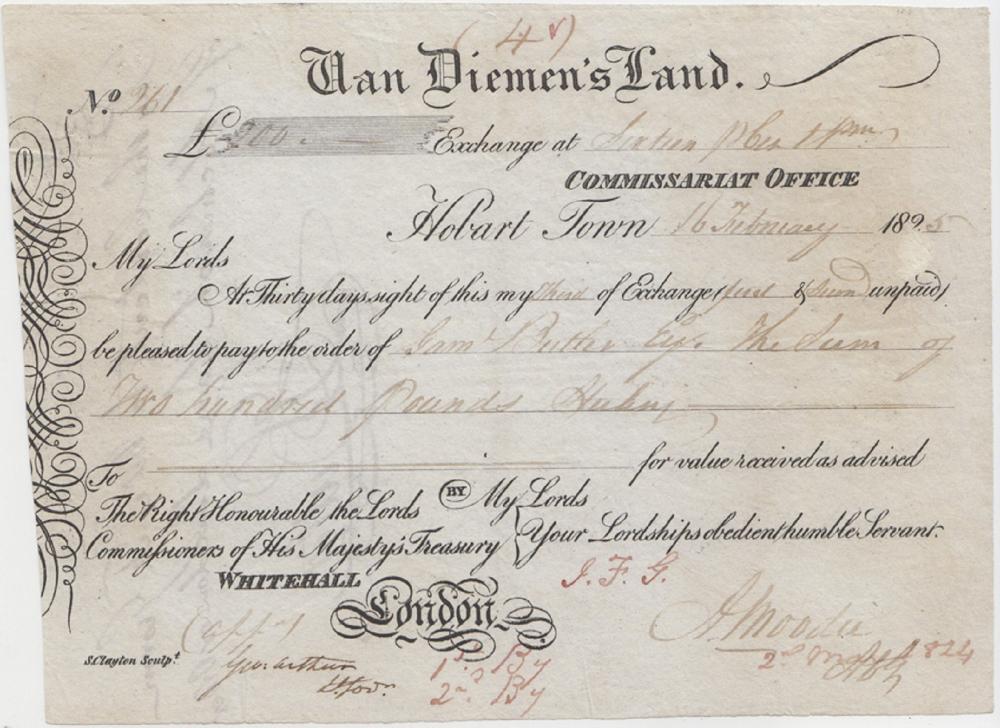 (4)
Van Diemen's Land.
No. 261
£ 200. Exchange at Sixteen p Cent Prm.
COMMISSARIAT OFFICE
Hobart Town 16 February 1825
My Lords
At Thirty days sight of this my third of Exchange (first & Second unpaid)
be pleased to pay to the order of Saml Butler Esqr. The Sum of
Two hundred Pounds
for value received as advised
To
The Right Honourable the Lords
Commissioners of His Majesty's Treasury
WHITEHALL
London
BY My Lords
Your Lordships obedient humble Servant.
J. F. G.
A Moodie
(appd)
Geo: Arthur
Lt Govr.
S. Clayton Sculpt.
1st By
2nd By
1824